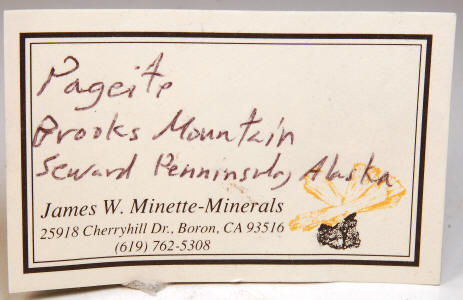 Pageite
Brooks Mountain
Seward Penninsula, Alaska
James W. Minette-Minerals
25918 Cherryhill Dr., Boron, CA 93516
(619) 762-5308